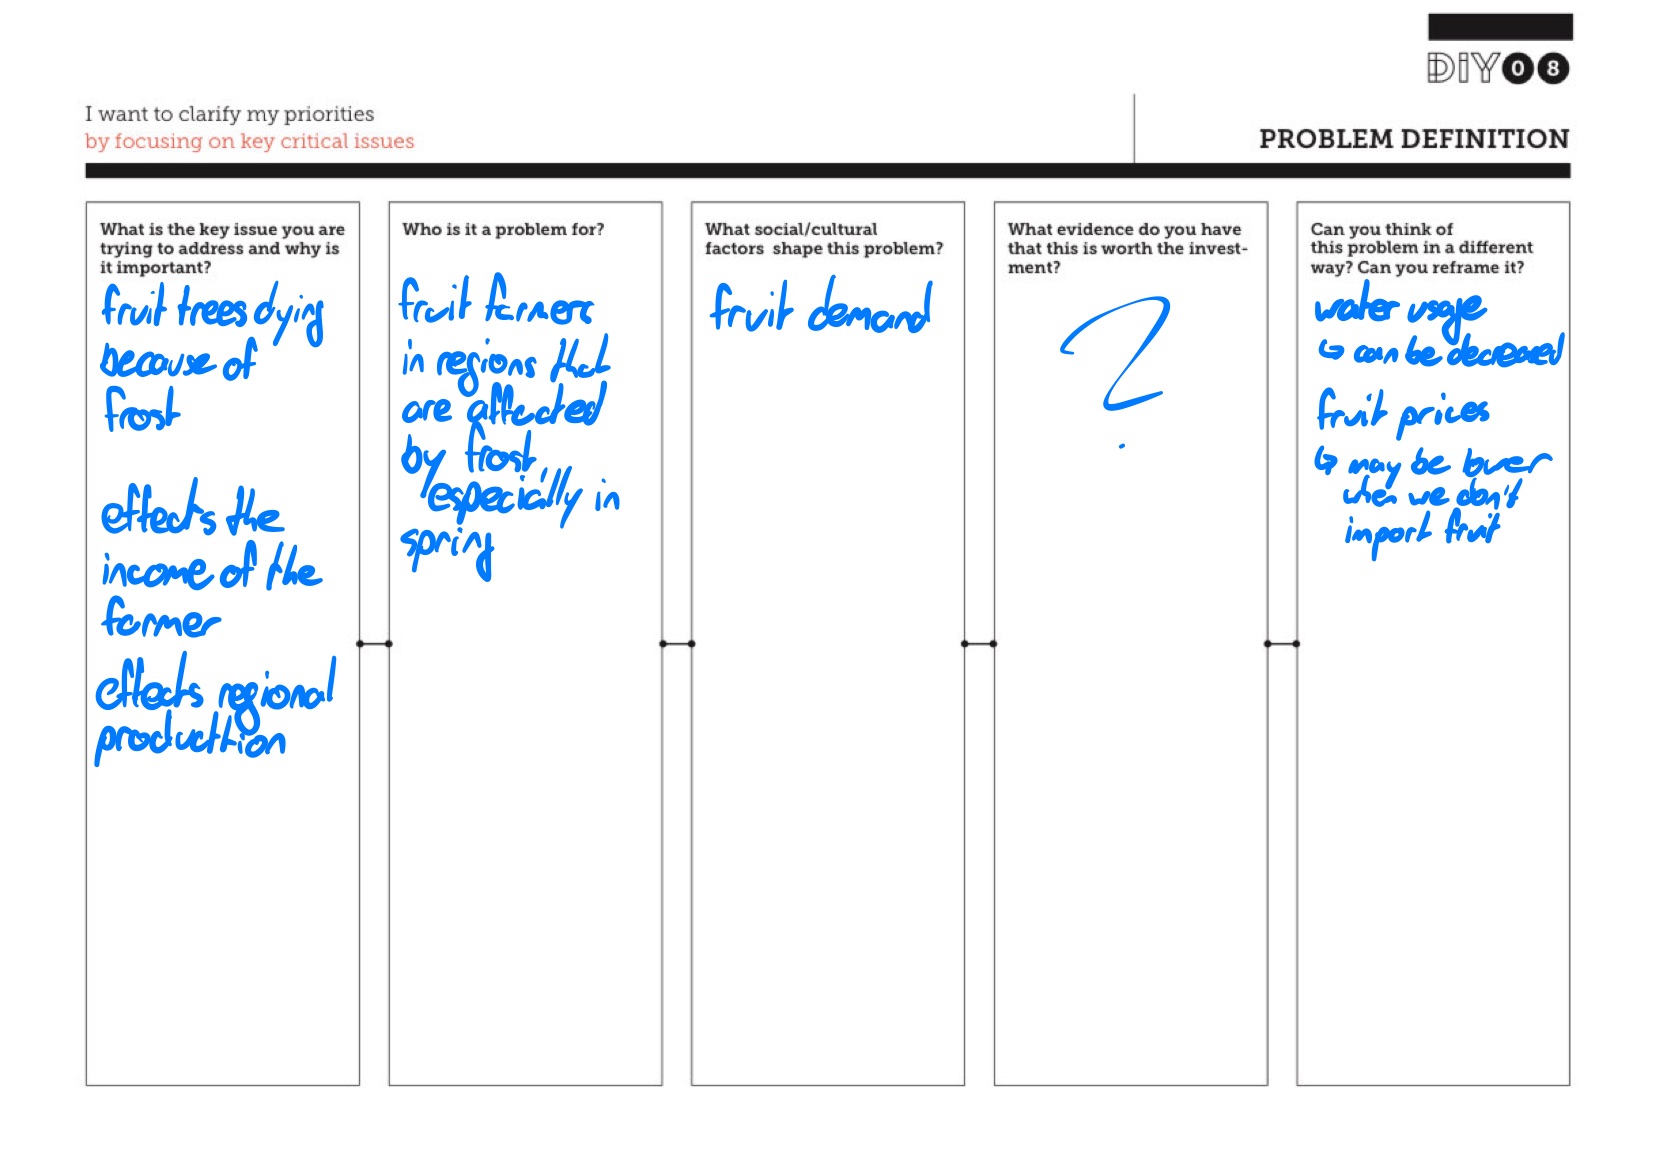 DIY 08
I want to clarify my priorities
by focusing on key critical issues
PROBLEM DEFINITION
What is the key issue you are
trying to address and why is
it important?
fruit trees dying
because of
frost
effects the
income of the
farmer
effects regional
producttion
Who is it a problem for?
fruit farmers
in regions that
are affected
by frost,
especially in
spring
What social/cultural
factors shape this problem?
fruit demand
What evidence do you have
that this is worth the invest-
ment?
?
Can you think of
this problem in a different
way? Can you reframe it?
water usage
↳ can be decreased
fruit prices
↳ may be lower
when we don't
import fruit